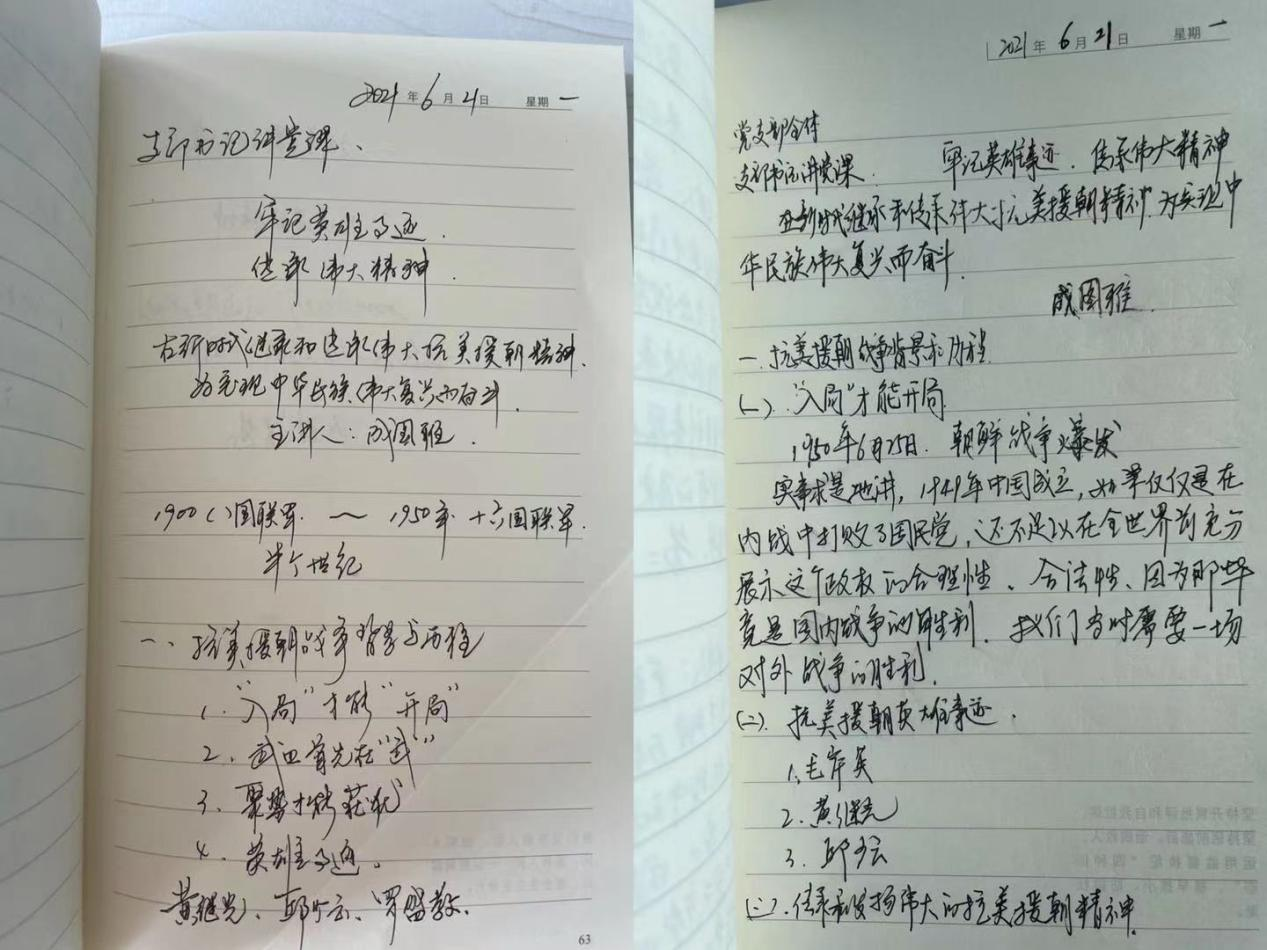 2021年6月21日 星期一
支部书记讲党课、
牢记英雄事迹.
传承伟大精神.
在新时代继承和传承伟大抗美援朝精神.
为实现中华民族伟大复兴而奋斗.
主讲人:成图雅.
1900八国联军. ～ 1950年十六国联军.
半个世纪
一、抗美援朝战争背景与历程
1.“入局”才能“开局”
2、武口首先在“武”
3、聚势才能获“礼”
4.英雄事迹。
黄继光、邱少云、罗盛教.
63
2021年6月21日 星期一
党支部全体
支部书记讲党课. 牢记英雄事迹.传承伟大精神
在新时代继承和传承伟大抗美援朝精神.为实现中
华民族伟大复兴而奋斗.
成图雅.
一.抗美援朝战争背景和历程
(一).“入局”才能开局
1950年6月25日.朝鲜战争爆发
实事求是地讲,1949年中国成立,如果仅仅是在
内战中打败了国民党,还不足以在全世界前充分
展示这个政权的合理性、合法性、因为那毕
竟是国内战争的胜利.我们当时需要一场
对外战争的胜利.
(二).抗美援朝英雄事迹.
1.毛岸英
2.黄继光
3.邱少云
(三).传承发扬伟大的抗美援朝精神.